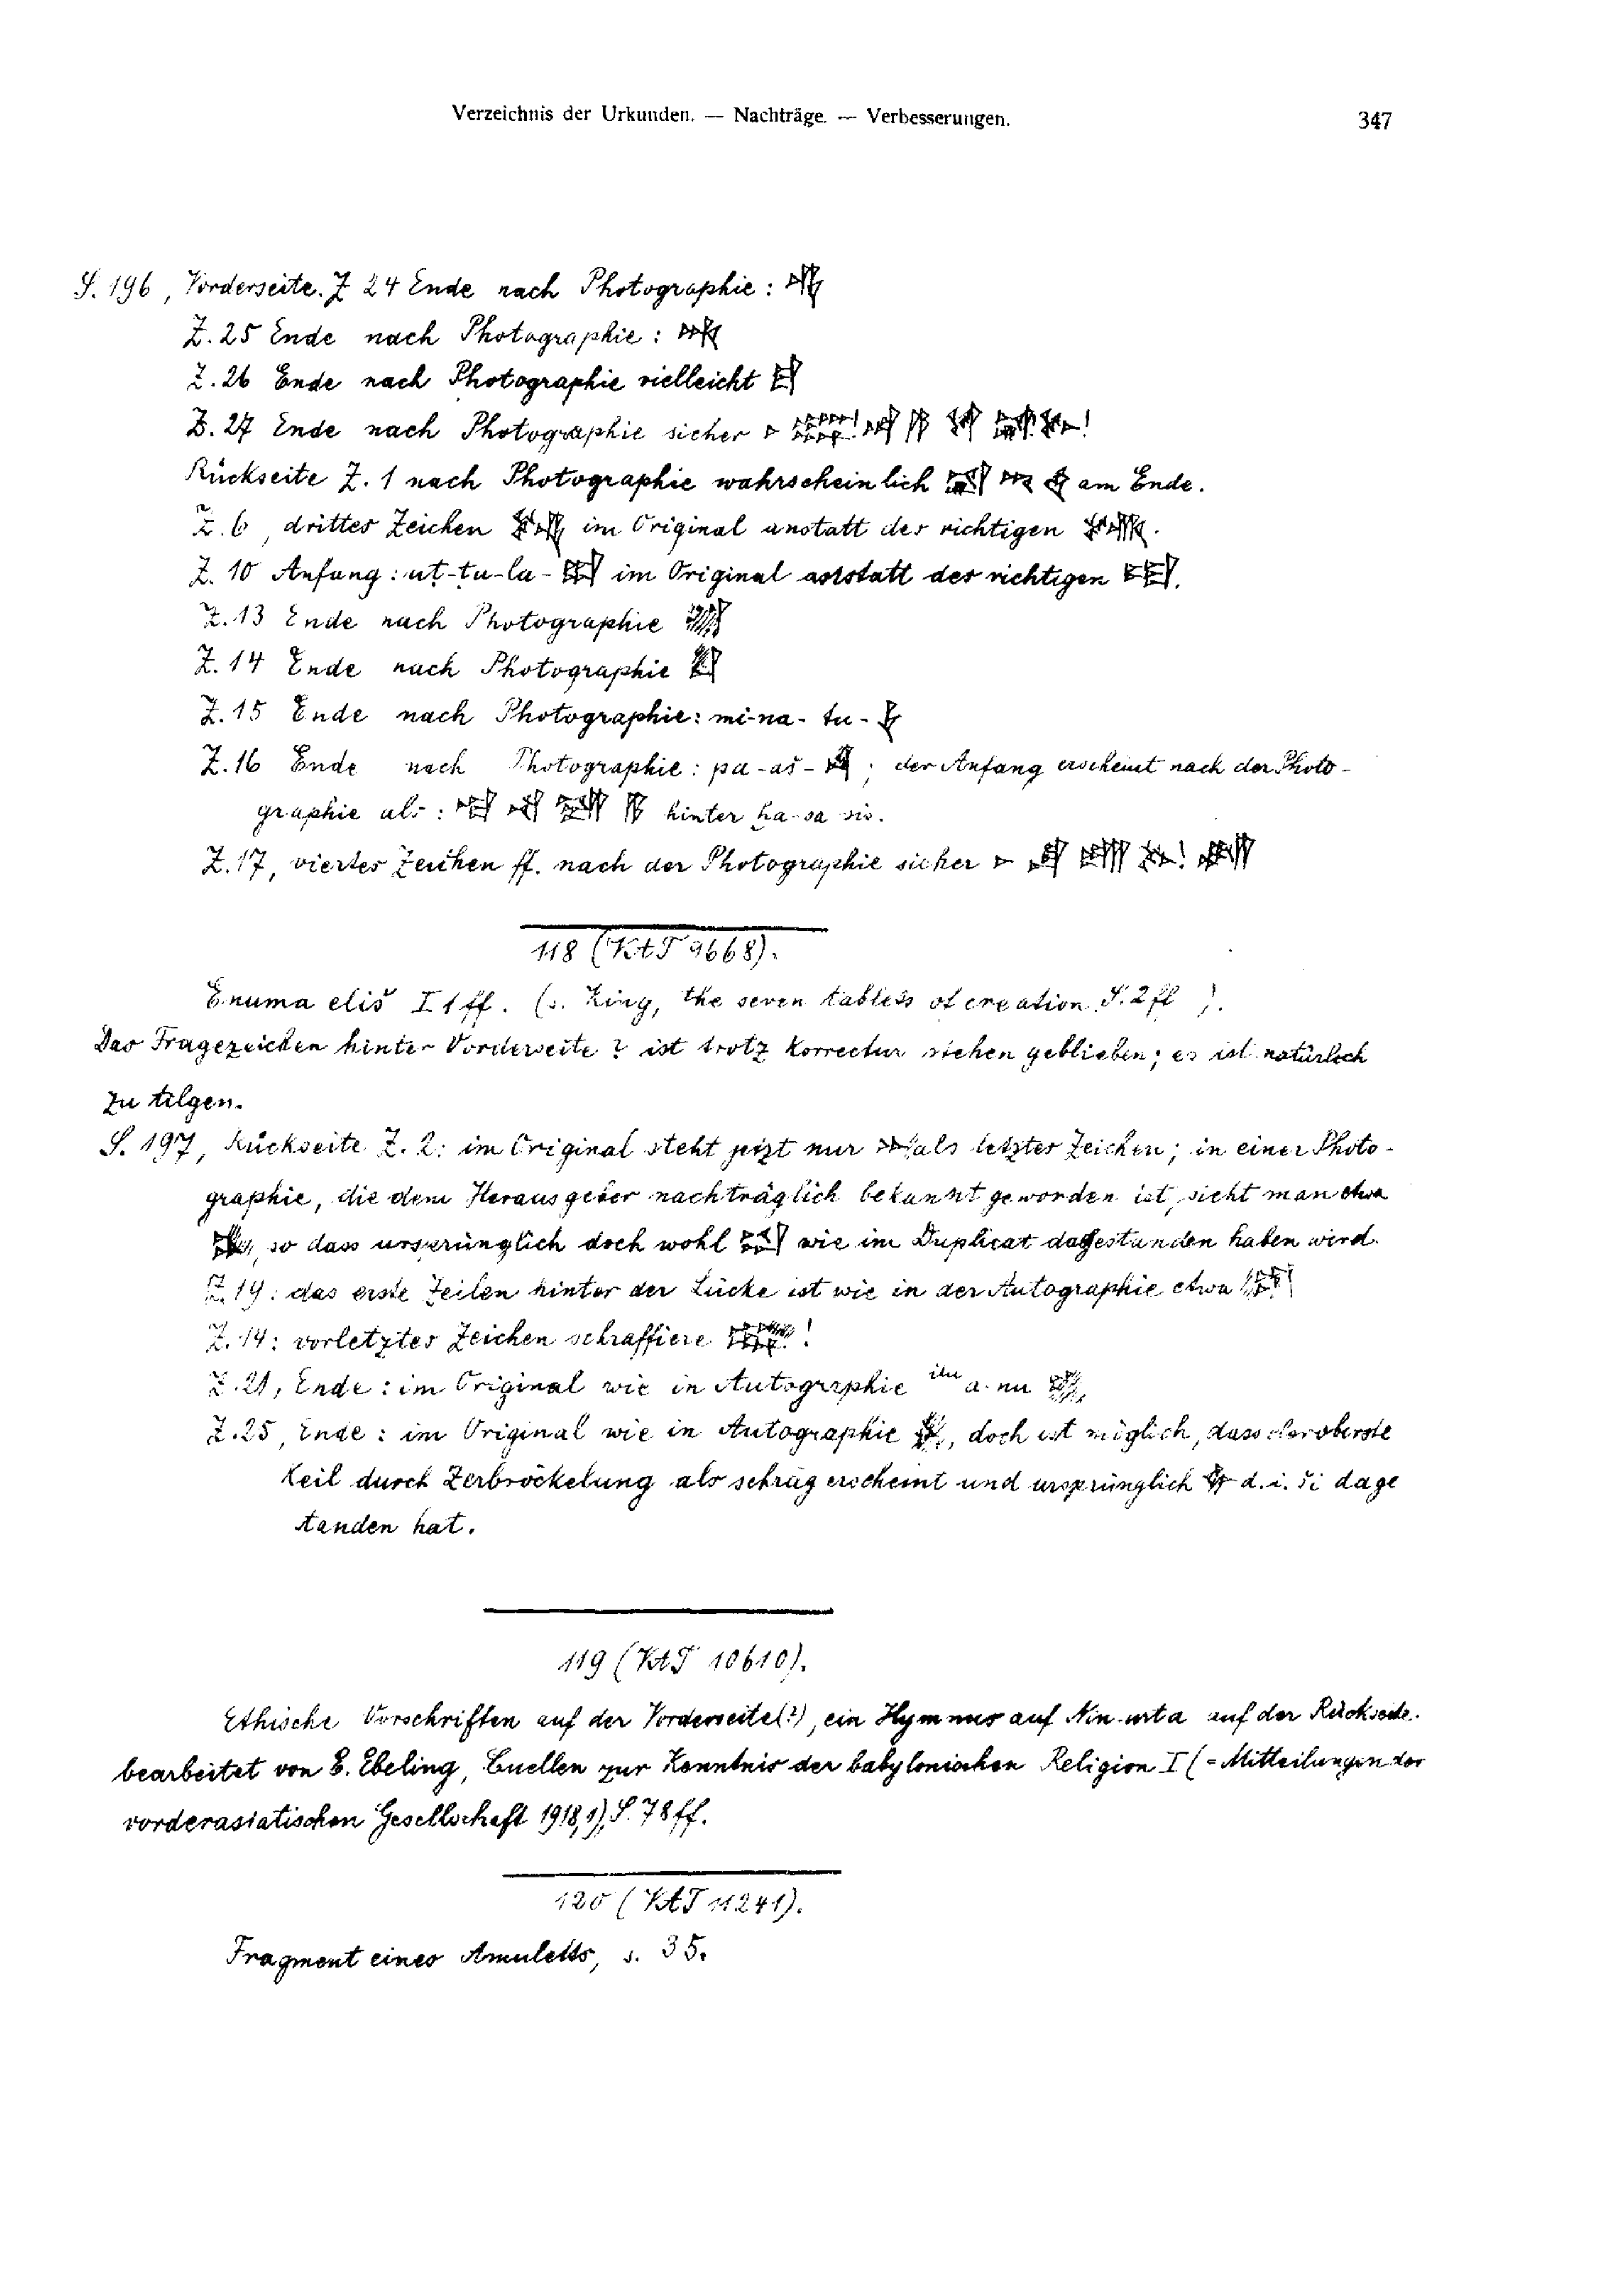 Verzeichnis der Urkunden. — Nachträge. — Verbesserungen. 347
S. 196, Vorderseite. Z 24 Ende nach Photographie:
Z. 25 Ende nach Photographie:
Z. 26 Ende nach Photographie vielleicht
Z. 27 Ende nach Photographie sicher
Rückseite Z. 1 nach Photographie wahrscheinlich am Ende.
Z. 6, drittes Zeichen im Original anstatt des richtigen
Z. 10 Anfang: ut-tu-la- im Original des richtigen
Z. 13 Ende nach Photographie
Z. 14 Ende nach Photographie
Z. 15 Ende nach Photographie: mi-na-tu-
Z. 16 Ende nach Photographie: pa-aš- ; der Anfang erscheint nach der Photo-
graphie als: hinter ḫa-sa sis.
Z. 17, viertes Zeichen ff. nach der Photographie sicher
118 (VAT 9668).
Enuma eliš I 1 ff. (s. King, the seven tablets of creation S. 2 ff ).
Das Fragezeichen hinter Vorderseite? ist trotz Korrectur stehen geblieben; es ist natürlich
zu tilgen.
S. 197, Rückseite Z. 2: im Original steht jetzt nur als letztes Zeichen; in einer Photo-
graphie, die dem Herausgeber nachträglich bekannt geworden ist, sieht man etwa
so dass ursprünglich doch wohl wie im Duplicat dagestanden haben wird.
Z. 19: das erste Zeilen hinter der Lücke ist wie in der Autographie etwa
Z. 14: vorletztes Zeichen schraffiere !
Z. 21, Ende: im Original wie in Autographie ilu a-nu
Z. 25, Ende: im Original wie in Autographie , doch ist möglich, dass der oberste
Keil durch Zerbröckelung als schräg erscheint und ursprünglich d. i. ši dage
standen hat.
119 (VAT 10610).
Ethische Vorschriften auf der Vorderseite(?), ein Hymnus auf Nin-urta auf der Rückseite.
bearbeitet von E. Ebeling, Quellen zur Kenntnis der babylonischen Religion I (= Mitteilungen der
vorderasiatischen Gesellschaft 1918,1), S. 78 ff.
120 (VAT 11241).
Fragment eines Amuletts, s. 35.